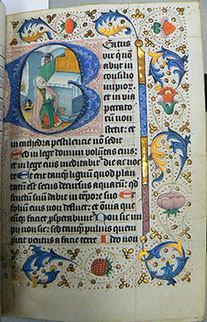 Eatus
vir qui nō
abiit in
consilio
impior̄
et in via
peccato
rū non
stetit: et
in cathedra pestilencie nō sed
Sed in lege domini volūtas eius: et
in lege eius meditabit̄ die ac noc
te Et erit tanq̄ lignum quod plan
tatū est secus decursus aquarū: qd
fructum suum dabit in tēpore suo Et
folium eius non defluet: et omnia que
cūq̄ faciet p̄sperabunt̄ Non sic im
pij non sic: sed tanq̄ puluis quem
ꝓicit ventus a facie terre Ideo non